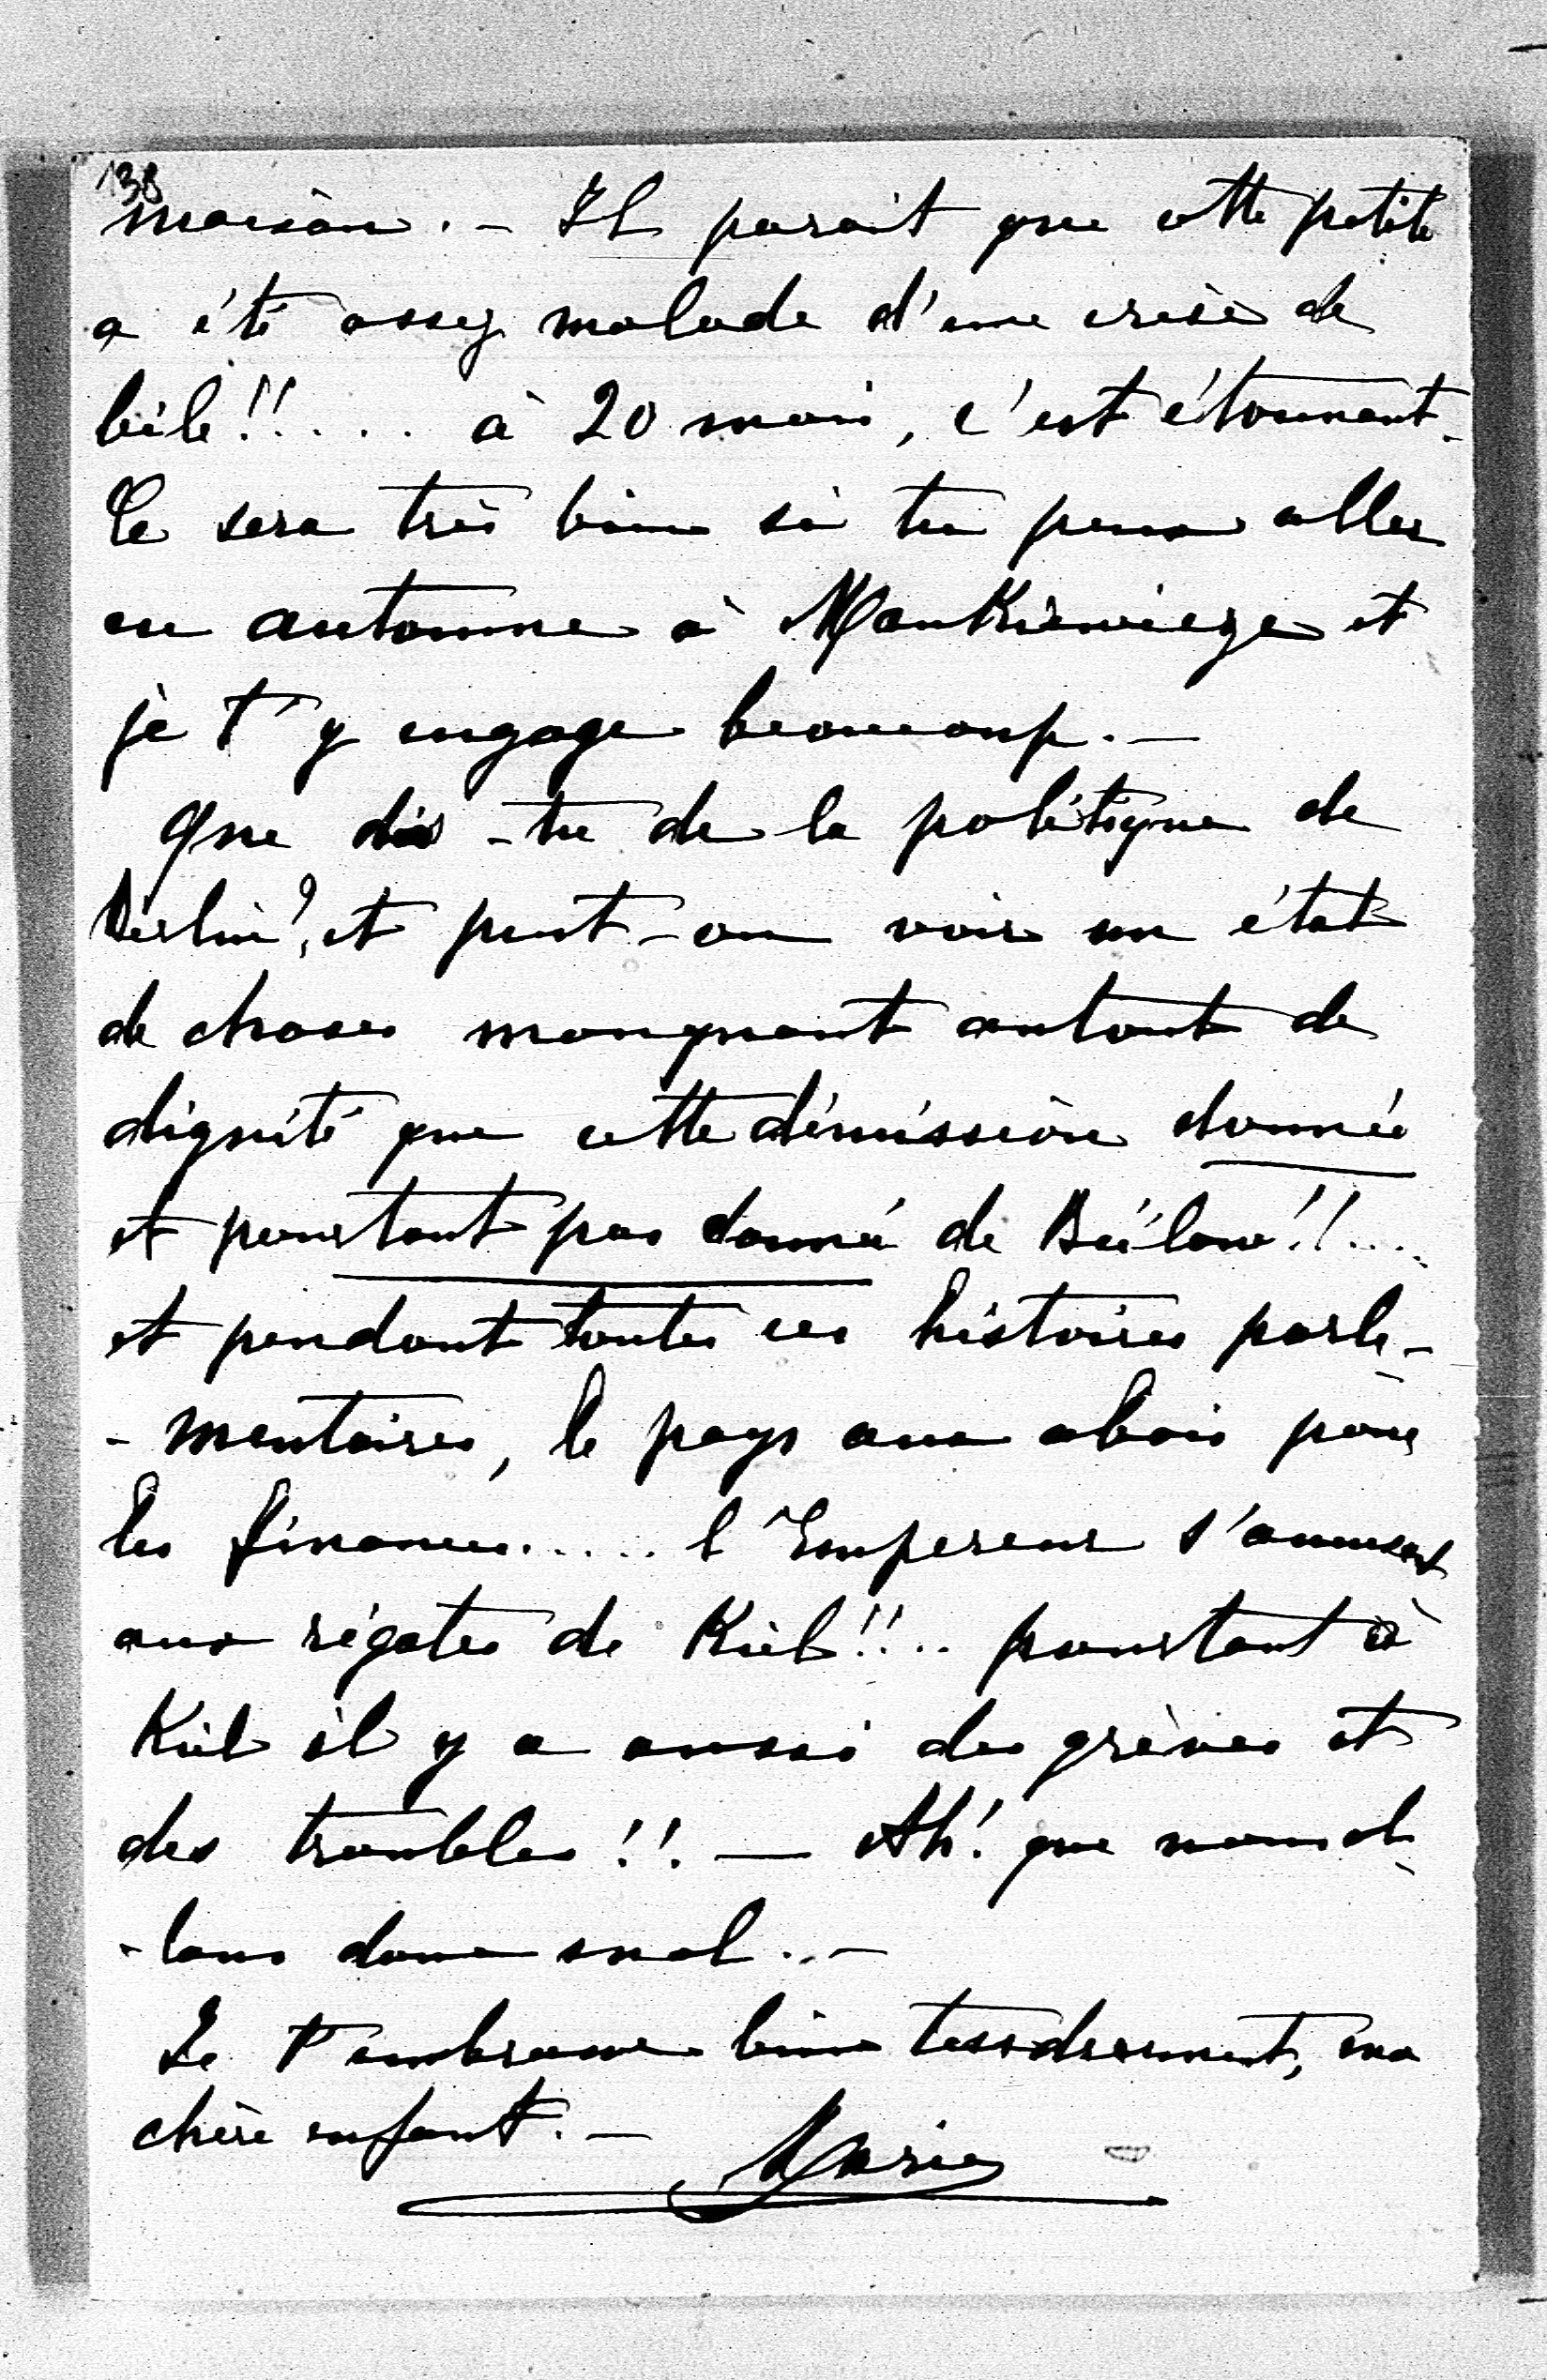 138
maison. — Il parait que cette petite
a été assez malade d'une crise de
bile!!.... à 20 mois, c'est étonnant.
Ce sera très bien si tu peux aller
en automne à Mankiewicze et
je t'y engage beaucoup. —
Que dis-tu de la politique de
Berlin?, et peut-on voir un état
de choses manquant autant de
dignité que cette démission donnée
et pourtant pas donnée de Bülow!!....
et pendant toutes ces histoires parle-
-mentaires, le pays aux abois pour
les finances..... l'Empereur s'amusant
aux régates de Kiel!!.. pourtant à
Kiel il y a aussi des grèves et
des troubles!! — Ah! que nous al-
-lons donc mal. —
Je t'embrasse bien tendrement, ma
chère enfant. —
Marie